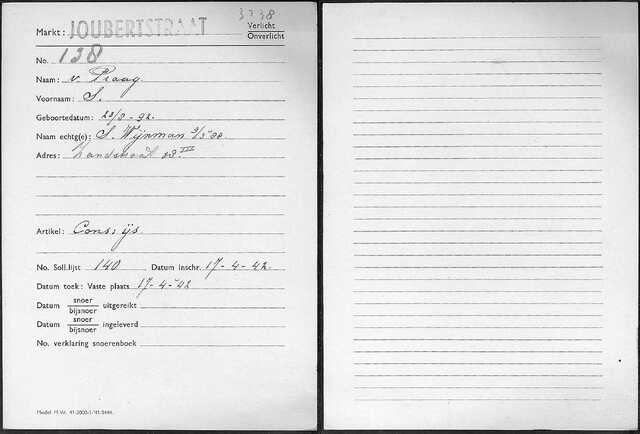 3738
Markt: JOUBERTSTRAAT Verlicht
Onverlicht
No. 138
Naam: v. Praag
Voornaam: S.
Geboortedatum: 23/8-92.
Naam echtg(e): S. Wijnman 9/3-88
Adres: Zandstraat 23 III
Artikel: Cons. ijs.
No. Soll.lijst 140 Datum inschr. 17-4-42.
Datum toek: Vaste plaats 17-4-'42
Datum snoer
bijsnoer uitgereikt
Datum snoer
bijsnoer ingeleverd
No. verklaring snoerenboek
Model M.W. 41-2000-1-'41-3446.